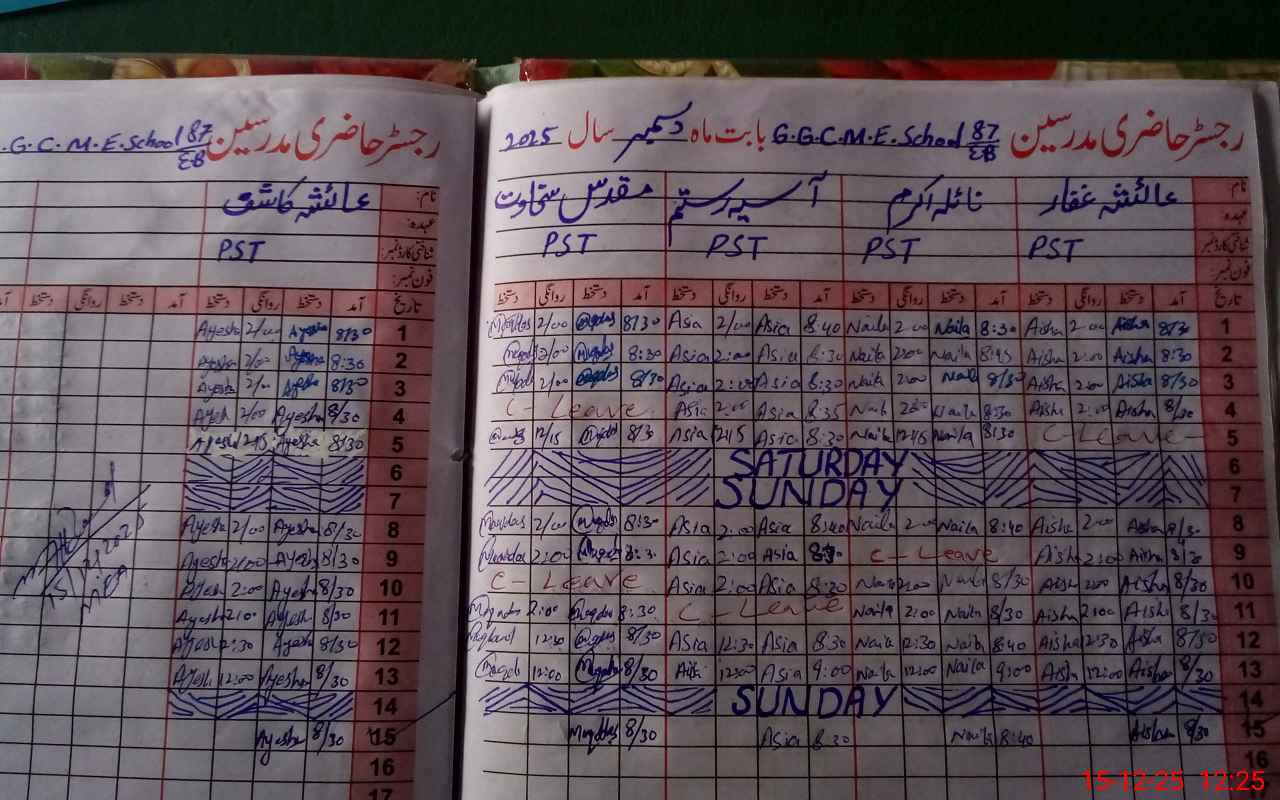 رجسٹر حاضری مدرسین G.G.C.M.E.School 87/EB بابت ماہ دسمبر سال 2025
نام: عائشہ غفار نائلہ اکرم آسیہ رستم مقدس سخاوت
عہدہ:
شناختی کارڈ نمبر: PST PST PST PST
فون نمبر:
تاریخ آمد دستخط روانگی دستخط آمد دستخط روانگی دستخط آمد دستخط روانگی دستخط آمد دستخط روانگی دستخط
1 8/30 Aisha 2:00 Aisha 8:30 Naila 2:00 Naila 8:40 Asia 2/00 Asia 8/30 2/00
2 8:30 Aisha 2:00 Aisha 8:45 Naila 2:00 Naila 8:30 Asia 2:00 Asia 8:30 2/00
3 8/30 Aisha 2:00 Aisha 8/30 Naila 2:00 Naila 8:30 Asia 2:00 Asia 8/30 2/00
4 8/30 Aisha 2:00 Aisha 8:30 Naila 2:00 Naila 8:35 Asia 2:00 Asia C-Leave
5 C-Leave 8:30 Naila 12:15 Naila 8:30 Asia 12:15 Asia 8/30 12/15
6 SATURDAY
7 SUNDAY
8 8/30 Aisha 2:00 Aisha 8:40 Naila 2:00 Naila 8:40 Asia 2:00 Asia 8:30 2/00
9 8/30 Aisha 2:00 Aisha C-Leave Asia 2:00 Asia 8:30 2:00
10 8/30 Aisha 2:00 Aisha 8/30 Naila 2:00 Naila 8:30 Asia 2:00 Asia C-Leave
11 8/30 Aisha 2:00 Aisha 8/30 Naila 2:00 Naila C-Leave 8:30 2:00
12 8/30 Aisha 12:30 Aisha 8:40 Naila 12:30 Naila 8:30 Asia 12:30 Asia 8/30 12:30
13 8/30 Aisha 12:00 Aisha 9:00 Naila 12:00 Naila 9:00 Asia 12:00 Asia 8/30 12:00
14 SUNDAY
15 8/30 Aisha 8:40 Naila 8:30 Asia 8/30
16
رجسٹر حاضری مدرسین .G.C.M.E.School 87/EB
نام: عائشہ کاشف
عہدہ:
شناختی کارڈ نمبر: PST
فون نمبر:
تاریخ آمد دستخط روانگی دستخط آمد دستخط روانگی دستخط آمد
1 8/30 Ayesha 2/00 Ayesha
2 8:30 Ayesha 2/00 Ayesha
3 8/30 Ayesha 2/00 Ayesha
4 8/30 Ayesha 2/00 Ayesh
5 8/30 Ayesha 12:15 Ayesha
6
7
8 8/30 Ayesha 2/00 Ayesha
9 8/30 Ayesha 2:00 Ayesha
10 8/30 Ayesha 2:00 Ayesh
11 8/30 Ayesh 2:00 Ayesha
12 8/30 Ayesha 12:30 Ayesh
13 8/30 Ayesha 12:00 Ayesh
14
15 8/30 Ayesha
16
17
15-12-25 12:25